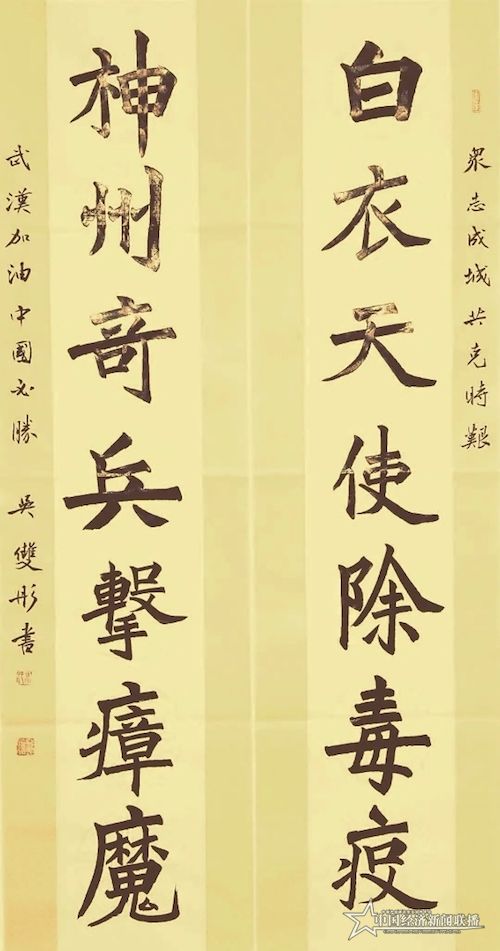 眾志成城共克時艱
白衣天使除毒疫
神州奇兵擊瘴魔
武漢加油中國必勝 吳雙彤書
中国经济新闻联播